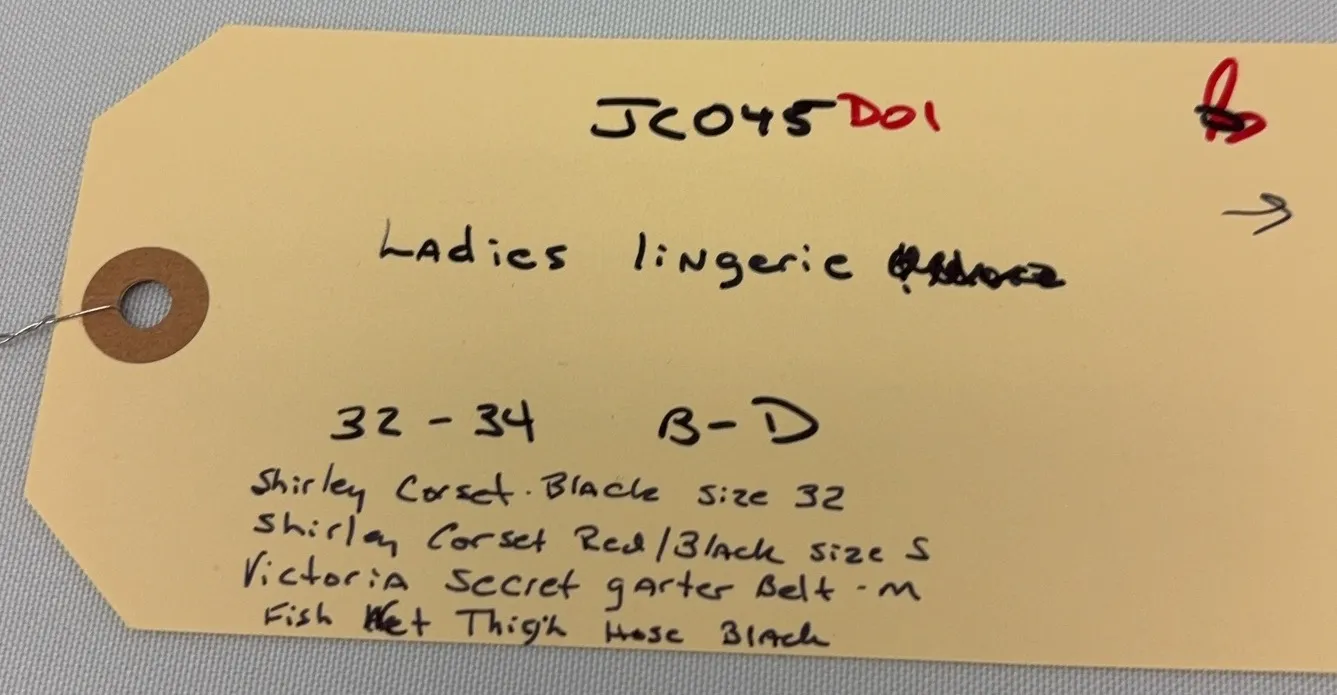 JC045 D01
Ladies lingerie
32 - 34 B - D
Shirley Corset. Black size 32
Shirley Corset Red/Black size S
Victoria Secret garter Belt - M
Fish Net Thigh Hose Black